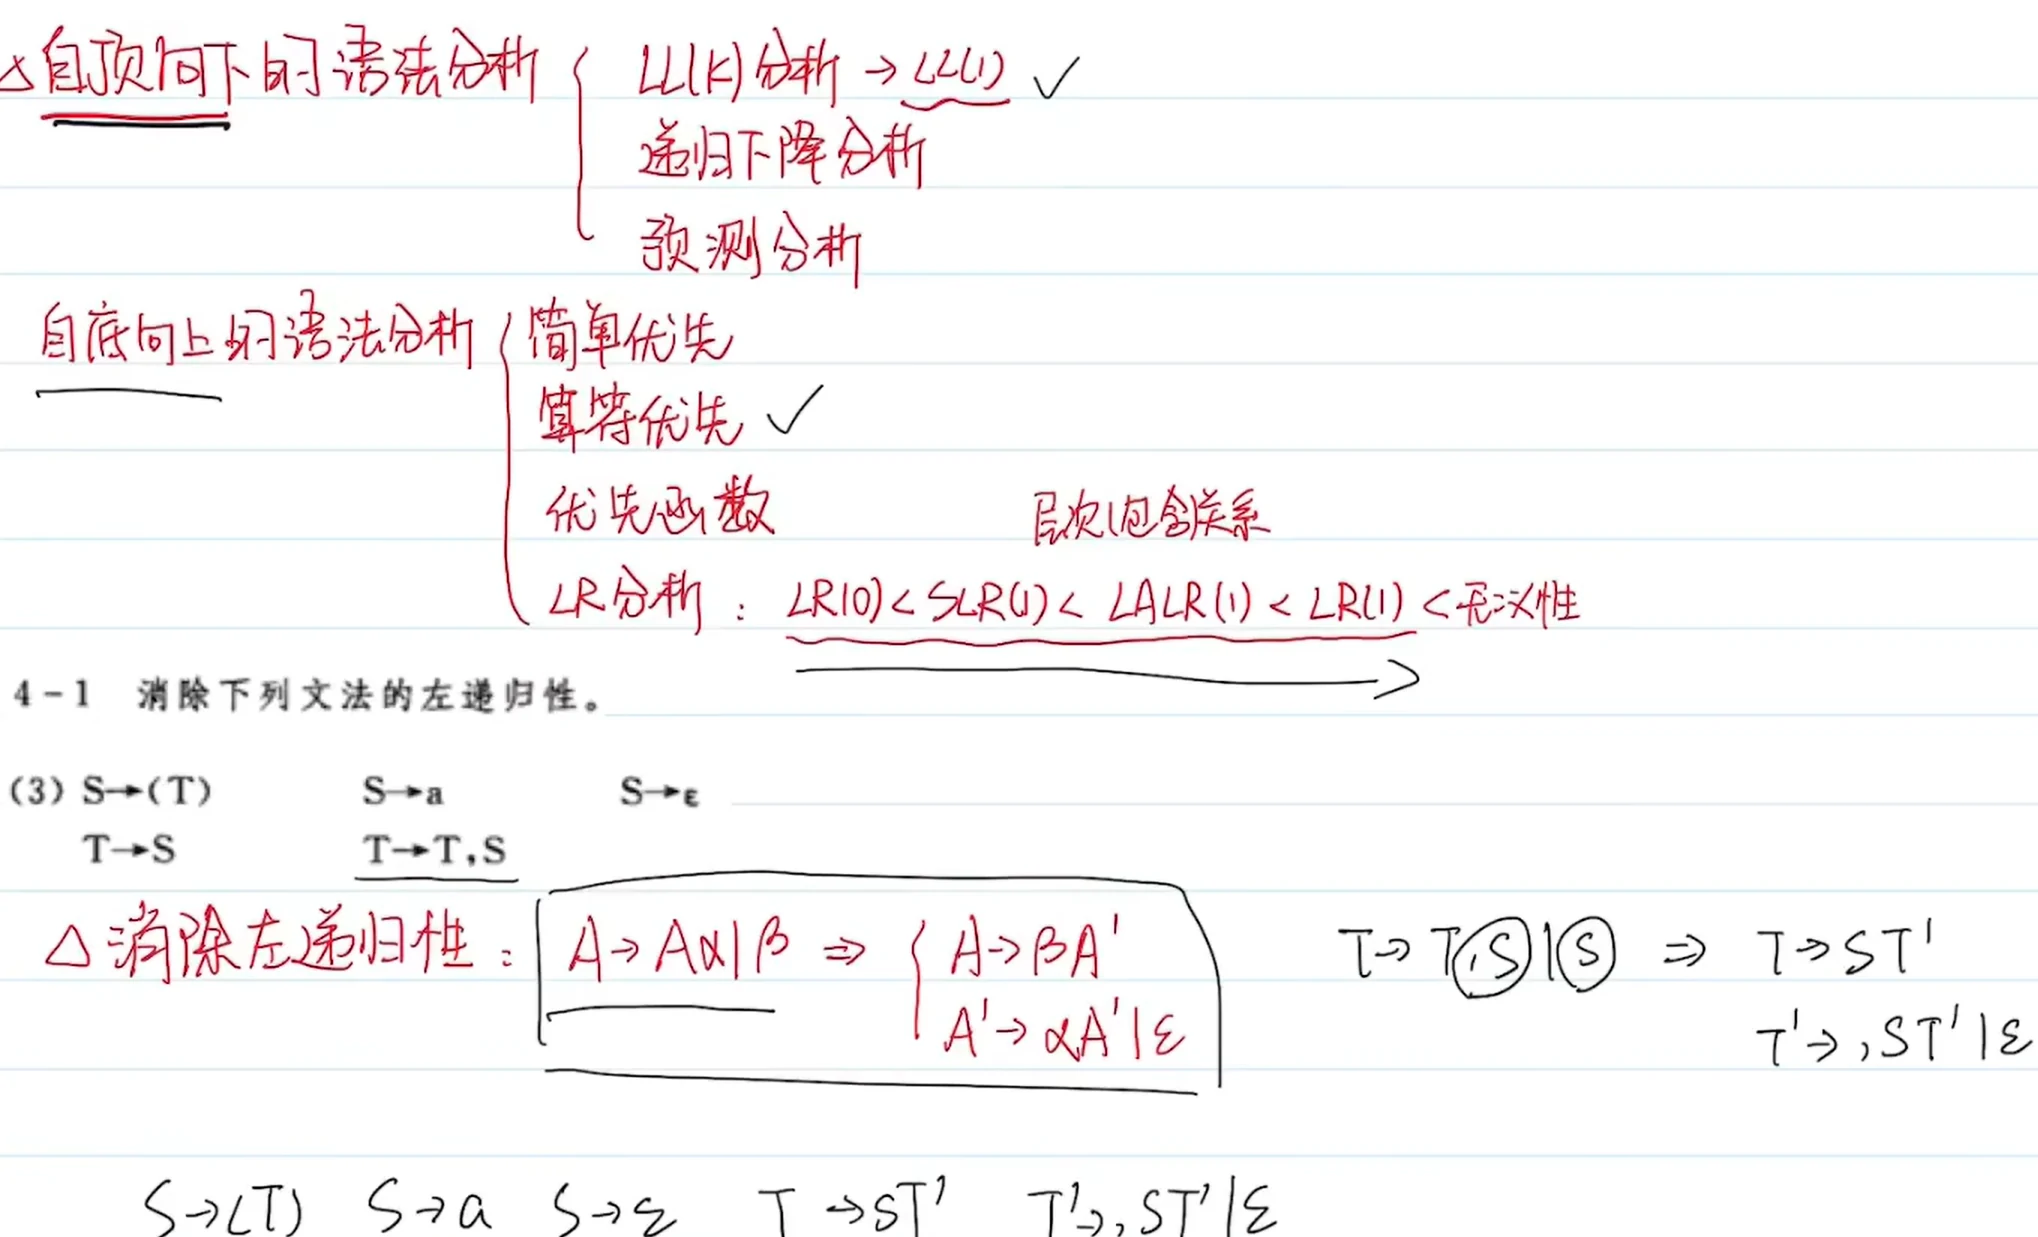 △自顶向下的语法分析 { LL(k)分析 → LL(1) ✓
递归下降分析
预测分析
自底向上的语法分析 { 简单优先
算符优先 ✓
优先函数
层次(包含)关系
LR分析 : LR(0) < SLR(1) < LALR(1) < LR(1) < 无二义性
4-1 消除下列文法的左递归性。
(3) S→(T) S→a S→ε
T→S T→T,S
△消除左递归性: A→Aα|β ⇒ { A→βA' T→T,S|S ⇒ T→ST'
A'→αA'|ε T'→,ST'|ε
S→(T) S→a S→ε T→ST' T'→,ST'|ε